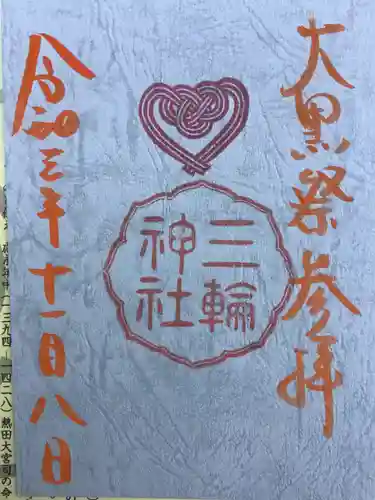 大黒祭参拝
三輪
神社
令和三年十一月八日
一三九四―一四二八)熱田大宮司の命